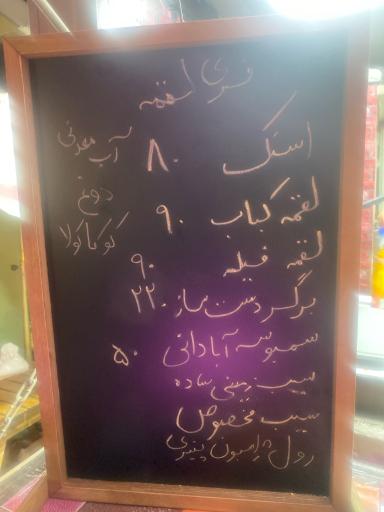 فری لقمه
اسنک ۸۰
لقمه کباب ۹۰
لقمه فیله ۹۰
برگر دست ساز ۲۲۰
سمبوسه آبادانی ۵۰
سیب زمینی ساده
سیب مخصوص
رول ژامبون پنیری
آب معدنی
دوغ
کوکاکولا